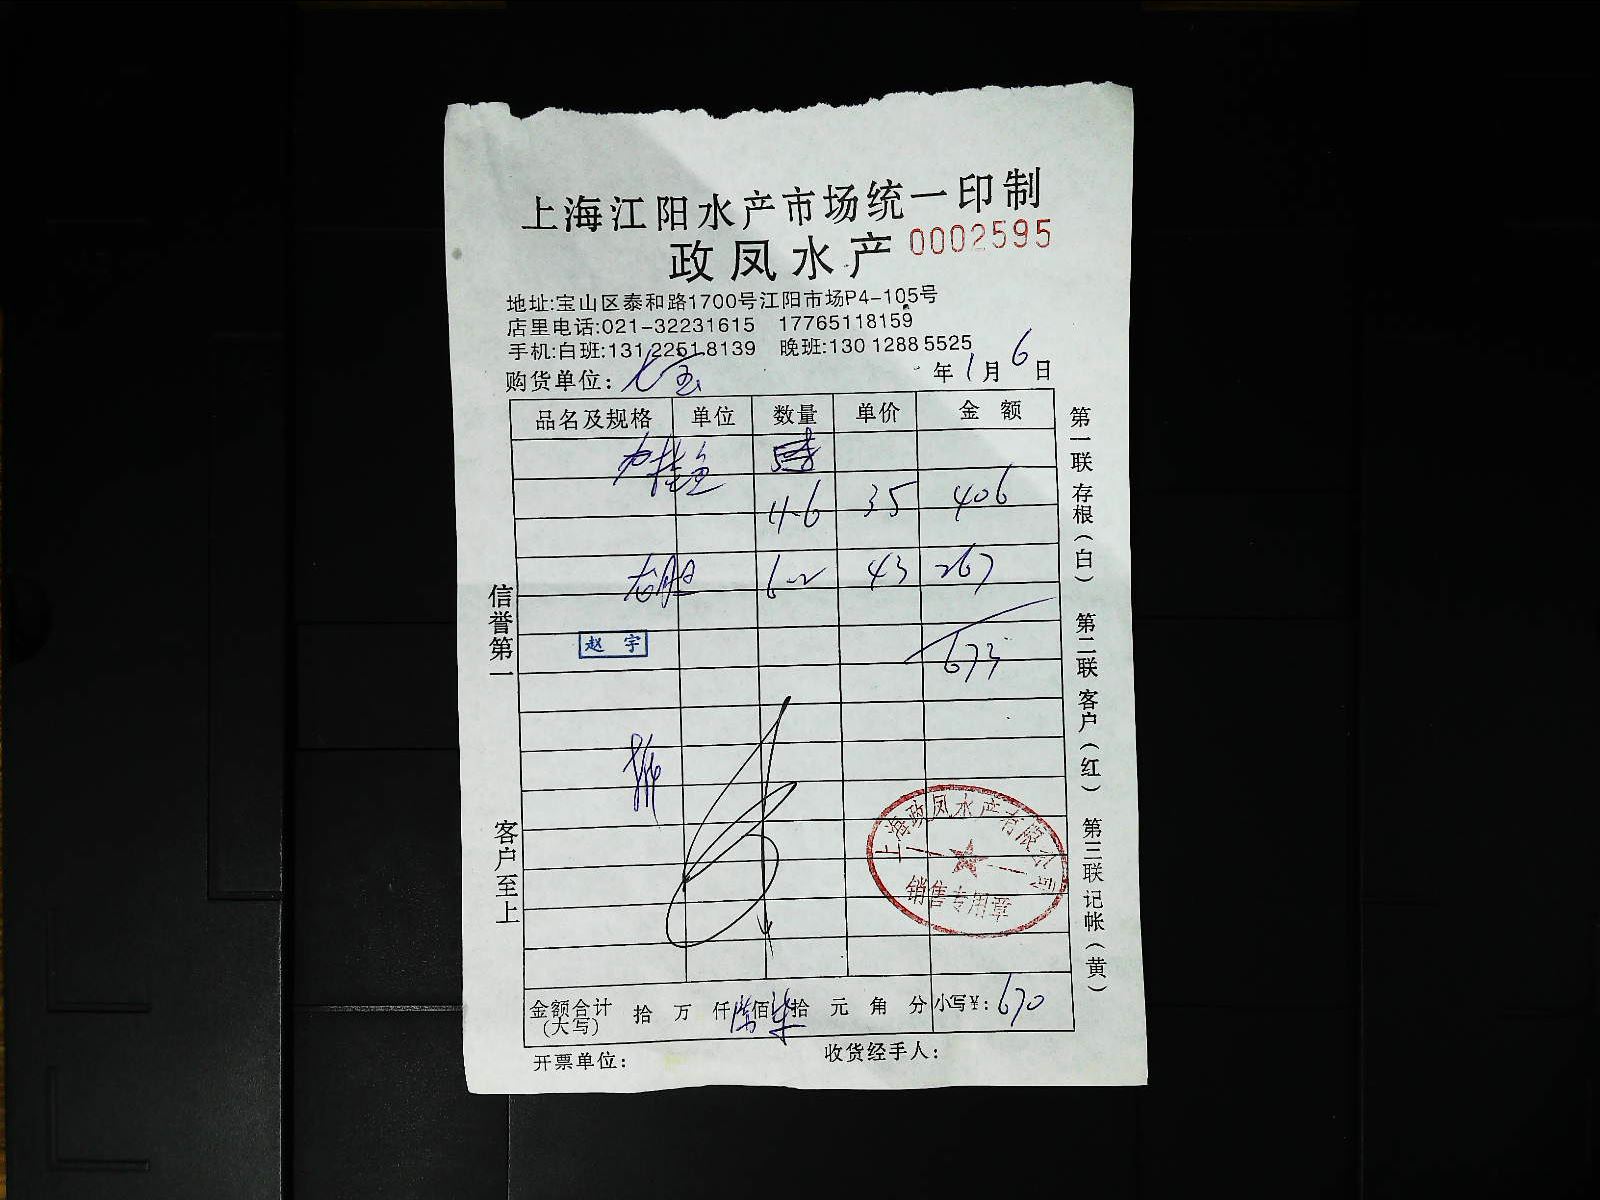 上海江阳水产市场统一印制
政凤水产 0002595
地址:宝山区泰和路1700号江阳市场P4-105号
店里电话:021-32231615 17765118159
手机:白班:131 2251 8139 晚班:130 1288 5525
购货单位: 七宝 年1月6日
品名及规格 单位 数量 单价 金额
桂鱼
35 406
6-2 43 267
赵宇
673
上海政凤水产有限公司
销售专用章
金额合计(大写) 拾 万 仟 陆佰 柒拾 元 角 分 小写¥: 670
开票单位: 收货经手人:
信誉第一
客户至上
第一联 存根(白) 第二联 客户(红) 第三联 记帐(黄)